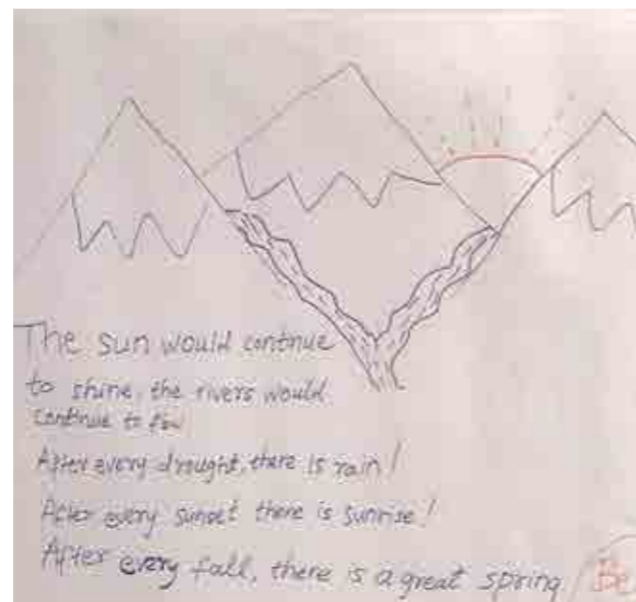 The sun would continue
to shine, the rivers would
continue to flow
After every drought, there is rain!
After every sunset there is sunrise!
After every fall, there is a great spring!
Be